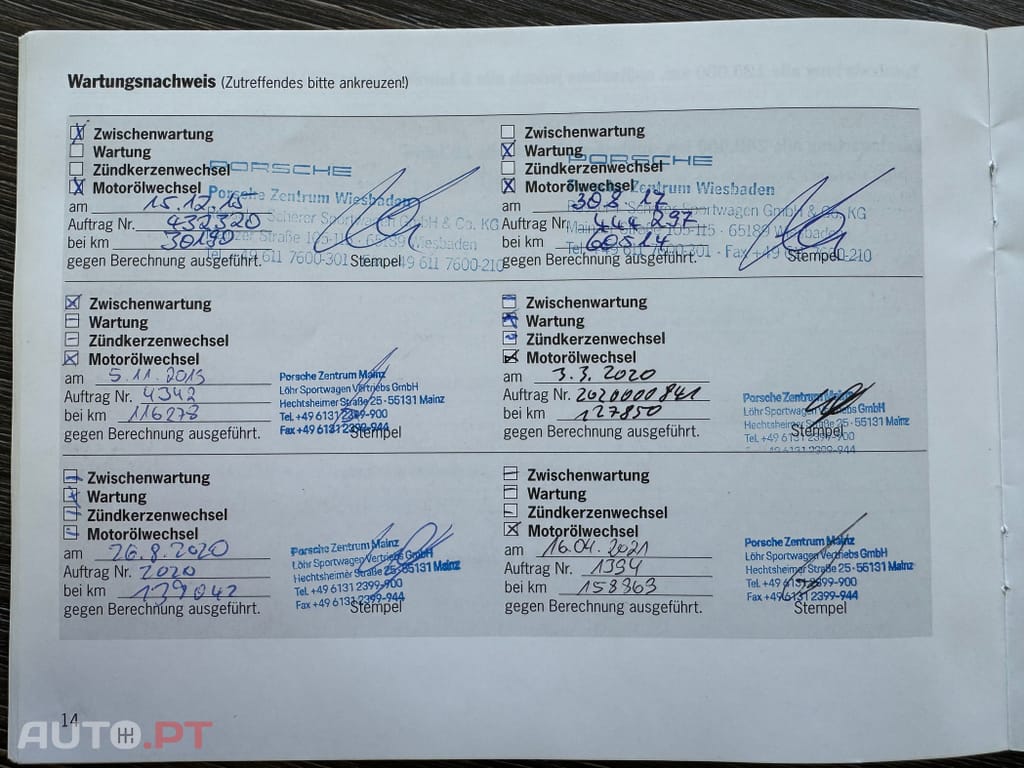 Wartungsnachweis (Zutreffendes bitte ankreuzen!)
Zwischenwartung
Wartung
Zündkerzenwechsel
PORSCHE
Motorölwechsel
Porsche Zentrum Wiesbaden
am 15.12.15
Scherer Sportwagen GmbH & Co. KG
Auftrag Nr. 432320
Straße 105-115 · 65189 Wiesbaden
bei km 30190
+49 611 7600-301 · Fax +49 611 7600-210
gegen Berechnung ausgeführt. Stempel
Zwischenwartung
Wartung
PORSCHE
Zündkerzenwechsel
Motorölwechsel
Zentrum Wiesbaden
am 30.8.17
Sportwagen GmbH & Co. KG
Auftrag Nr. 444297
Straße 105-115 · 65189 Wiesbaden
bei km 60514
Fax +49 611 7600-210
gegen Berechnung ausgeführt. Stempel
Zwischenwartung
Wartung
Zündkerzenwechsel
Motorölwechsel
am 5.11.2019
Auftrag Nr. 4342
bei km 116278
gegen Berechnung ausgeführt.
Porsche Zentrum Mainz
Löhr Sportwagen Vertriebs GmbH
Hechtsheimer Straße 25 · 55131 Mainz
Tel. +49 6131 2399-900
Fax +49 6131 2399-944
Stempel
Zwischenwartung
Wartung
Zündkerzenwechsel
Motorölwechsel
am 3.3.2020
Auftrag Nr. 2020000841
bei km 127850
gegen Berechnung ausgeführt.
Porsche Zentrum Mainz
Löhr Sportwagen Vertriebs GmbH
Hechtsheimer Straße 25 · 55131 Mainz
Tel. +49 6131 2399-900
Fax +49 6131 2399-944
Stempel
Zwischenwartung
Wartung
Zündkerzenwechsel
Motorölwechsel
am 26.8.2020
Auftrag Nr. 2020
bei km 139042
gegen Berechnung ausgeführt.
Porsche Zentrum Mainz
Löhr Sportwagen Vertriebs GmbH
Hechtsheimer Straße 25 · 55131 Mainz
Tel. +49 6131 2399-900
Fax +49 6131 2399-944
Stempel
Zwischenwartung
Wartung
Zündkerzenwechsel
Motorölwechsel
am 16.04.2021
Auftrag Nr. 1394
bei km 158363
gegen Berechnung ausgeführt.
Porsche Zentrum Mainz
Löhr Sportwagen Vertriebs GmbH
Hechtsheimer Straße 25 · 55131 Mainz
Tel. +49 6131 2399-900
Fax +49 6131 2399-944
Stempel
14
AUTO.PT